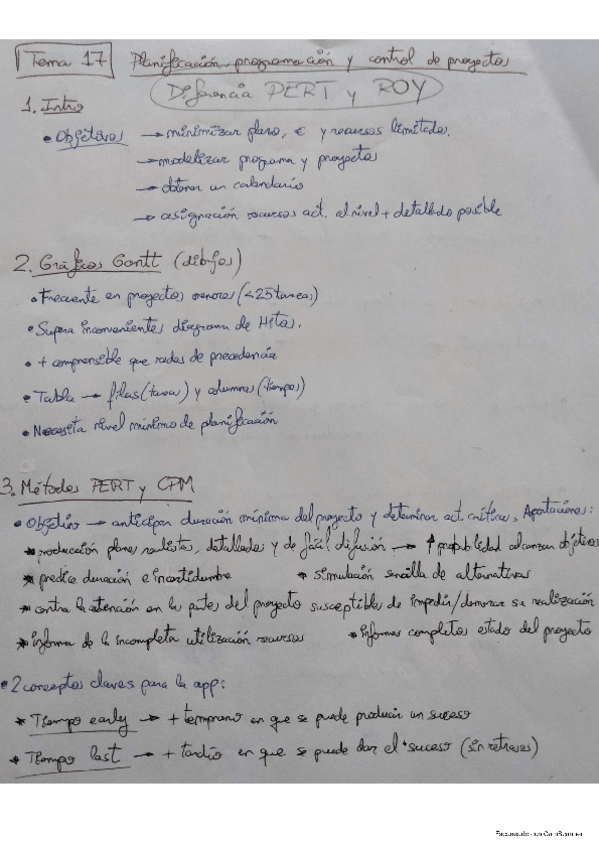 Tema 17 Planificación, programación y control de proyectos
Diferencia PERT y ROY
1. Intro
• Objetivos → minimizar plazo, € y recursos limitados.
→ modelizar programa y proyecto
→ obtener un calendario
→ asignación recursos act. al nivel + detallado posible
2. Gráficos Gantt (dibujos)
• Frecuente en proyectos menores (<25 tareas)
• Supera inconvenientes diagrama de Hitos.
• + comprensible que redes de precedencia
• Tabla → filas (tarea) y columnas (tiempos)
• Necesita nivel mínimo de planificación
3. Métodos PERT y CPM
• Objetivo → anticipar duración mínima del proyecto y determinar act. críticas, Aportaciones:
* producción planes realistas, detallados y de fácil difusión → ↑ probabilidad alcanzar objetivos
* predice duración e incertidumbre * simulación sencilla de alternativas
* centra la atención en las partes del proyecto susceptibles de impedir/demorar su realización
* informa de la incompleta utilización recursos * informes completos estado del proyecto
• 2 conceptos claves para la app:
* Tiempo early → + temprano en que se puede producir un suceso
* Tiempo last → + tardío en que se puede dar el suceso (sin retrasos)